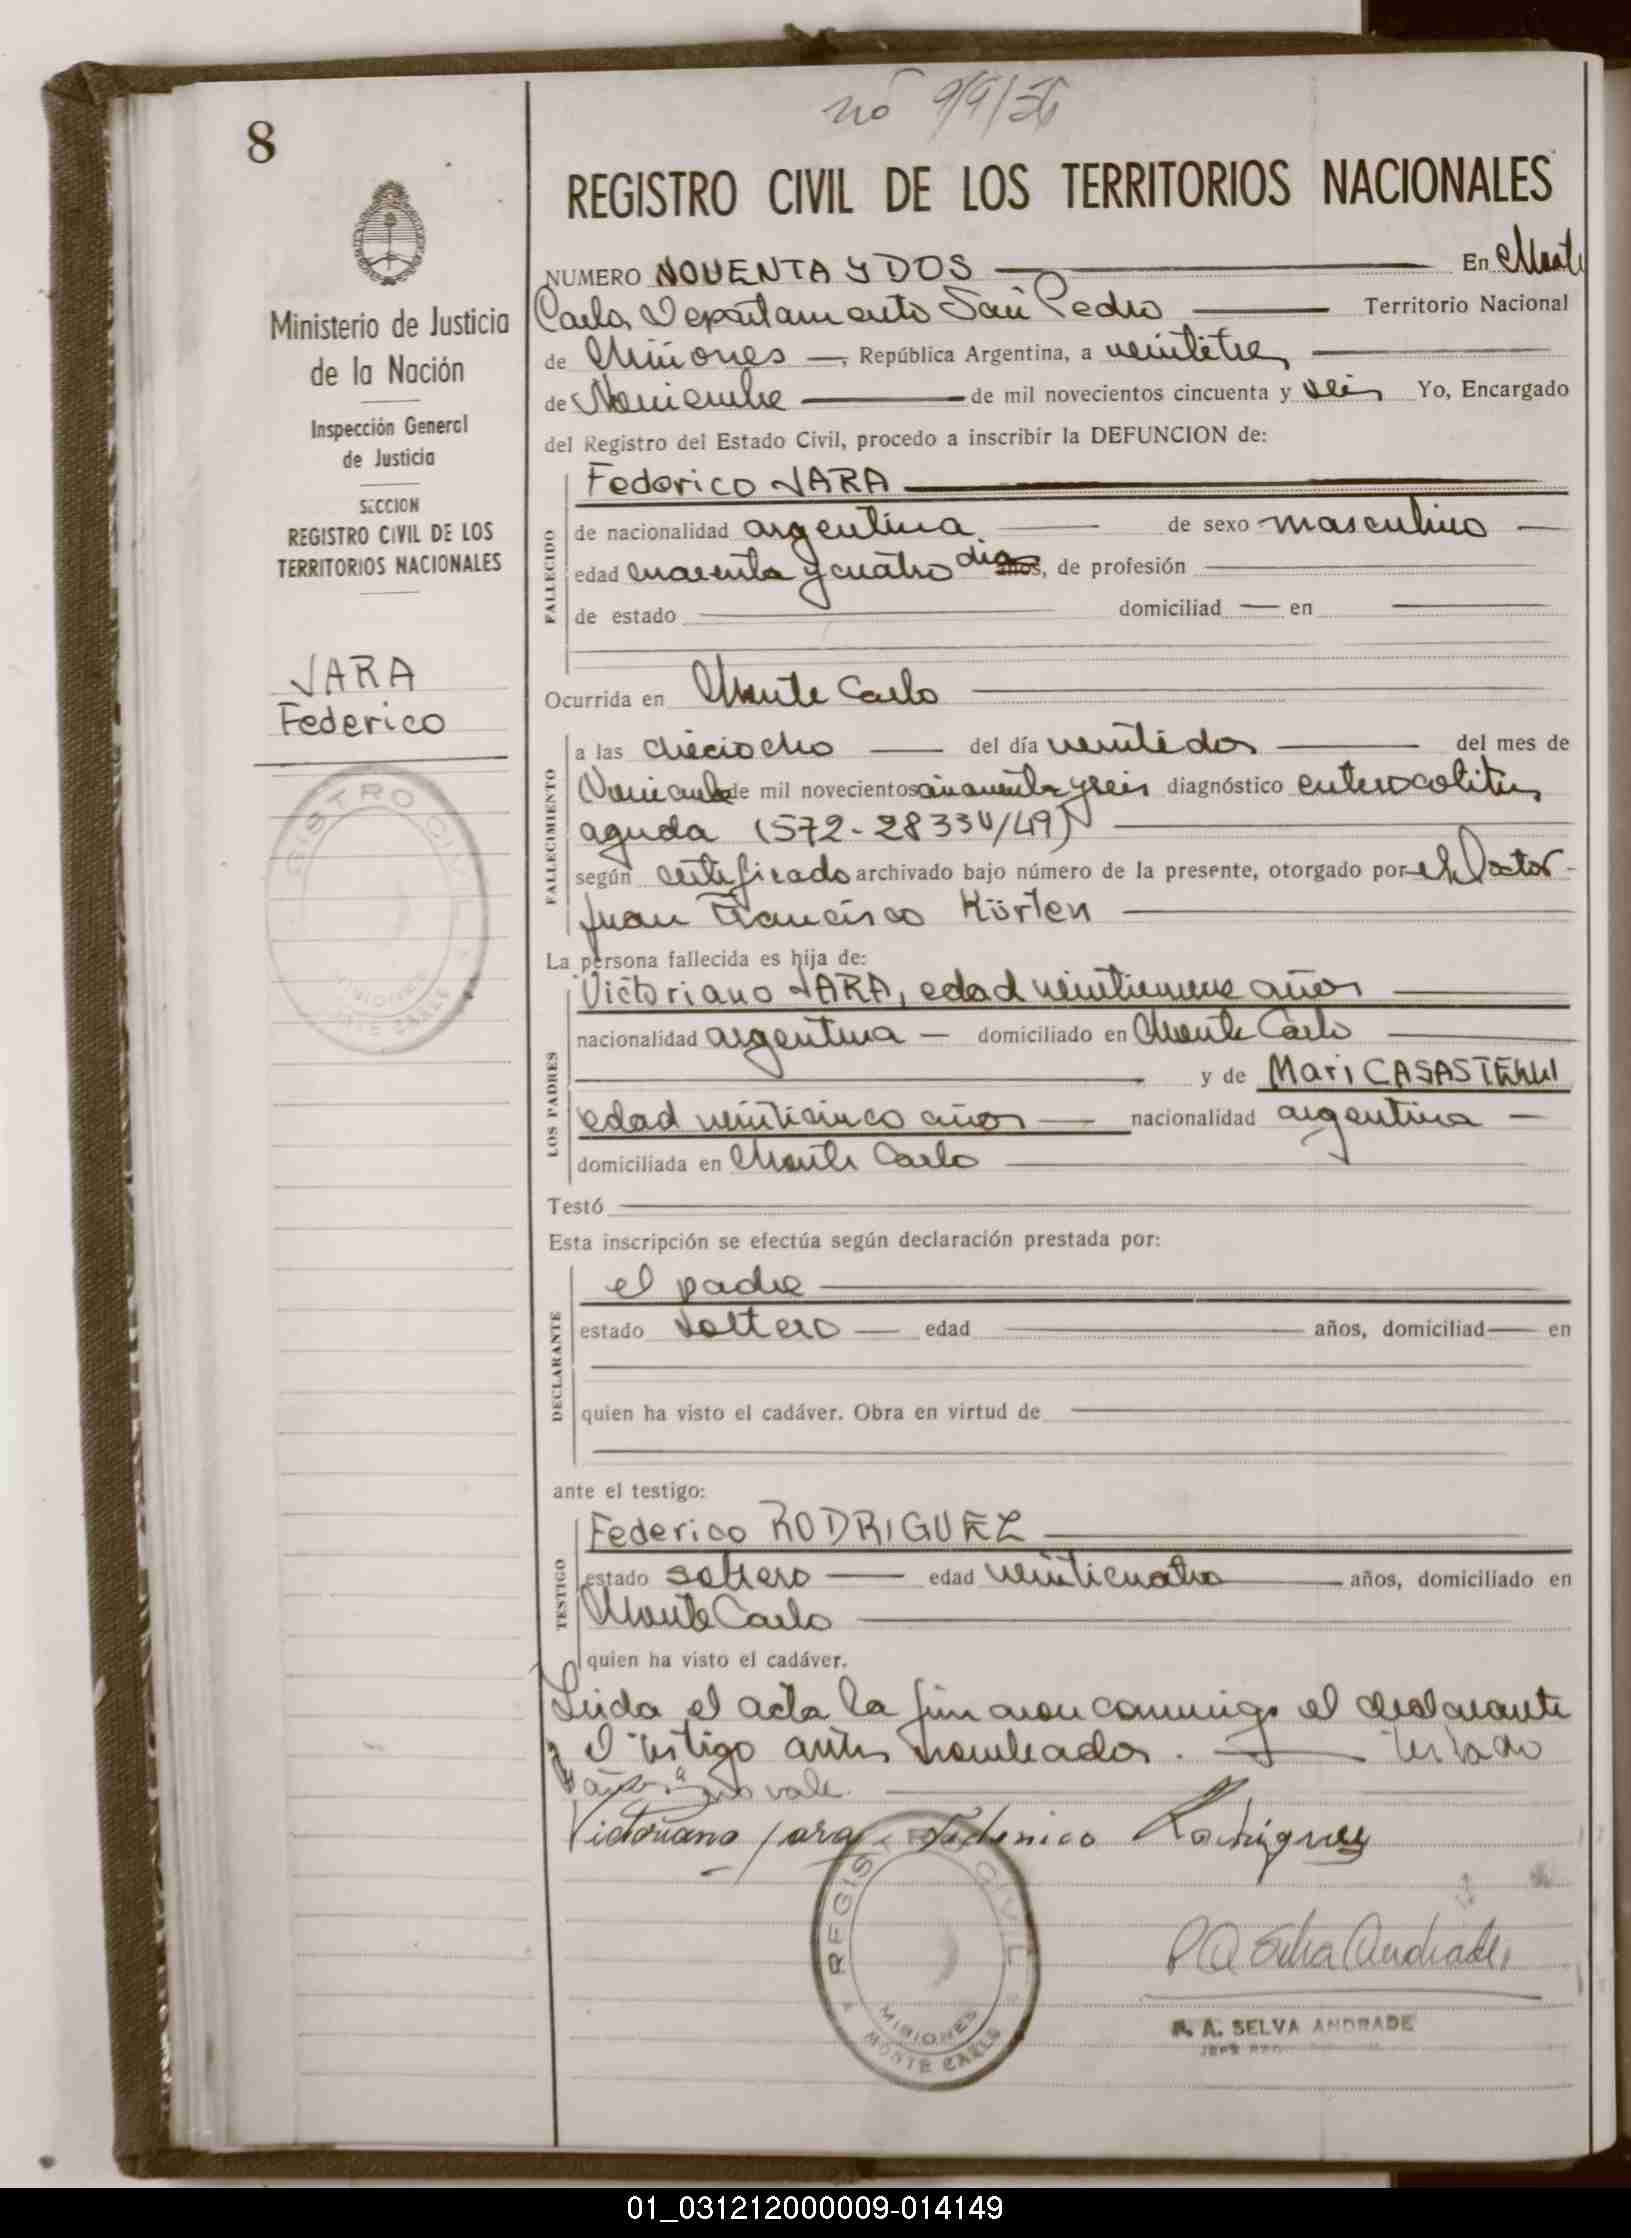 8
nó 9/9/56
REGISTRO CIVIL DE LOS TERRITORIOS NACIONALES
Ministerio de Justicia
de la Nación
Inspección General
de Justicia
SECCION
REGISTRO CIVIL DE LOS
TERRITORIOS NACIONALES
JARA
Federico
NUMERO NOVENTA Y DOS En Monte
Carlo, Departamento San Pedro Territorio Nacional
de Misiones, República Argentina, a veintitres
de Noviembre de mil novecientos cincuenta y seis Yo, Encargado
del Registro del Estado Civil, procedo a inscribir la DEFUNCION de:
FALLECIDO
Federico JARA
de nacionalidad argentina de sexo masculino
edad cuarenta y cuatro dias años, de profesión
de estado domiciliad en
Ocurrida en Monte Carlo
FALLECIMIENTO
a las dieciocho del día veintidos del mes de
Noviembre de mil novecientos cincuenta y seis diagnóstico enterocolitis
aguda (572-28330/49)
según certificado archivado bajo número de la presente, otorgado por el Doctor
Juan Francisco Kürten
La persona fallecida es hija de:
LOS PADRES
Victoriano JARA, edad veintinueve años
nacionalidad argentina domiciliado en Monte Carlo
y de Mari CASASTEHUI
edad veinticinco años nacionalidad argentina
domiciliada en Monte Carlo
Testó
Esta inscripción se efectúa según declaración prestada por:
DECLARANTE
el padre
estado soltero edad años, domiciliad en
quien ha visto el cadáver. Obra en virtud de
ante el testigo:
TESTIGO
Federico RODRIGUEZ
estado soltero edad veinticuatro años, domiciliado en
Monte Carlo
quien ha visto el cadáver.
Leida el acta la firmaron conmigo el declarante
y el testigo antes nombrados. Testado
no vale
Victoriano Jara Federico Rodriguez
REGISTRO CIVIL
MISIONES
MONTE CARLO
P A Selva Andrade
P. A. SELVA ANDRADE
01_031212000009-014149